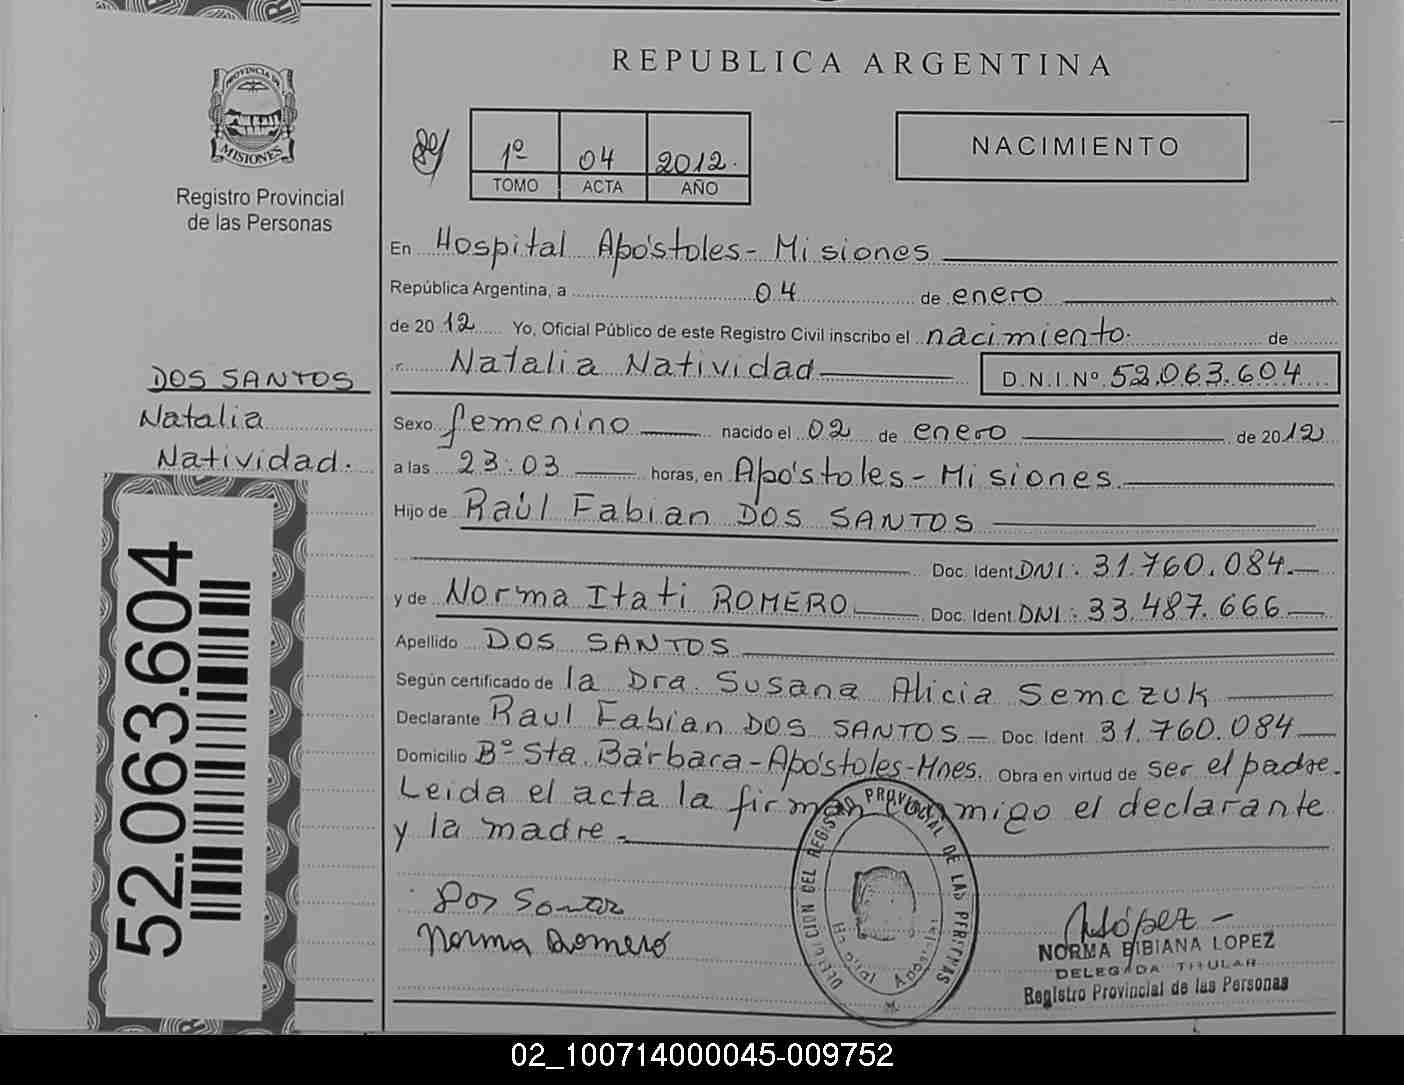 REPUBLICA ARGENTINA
PROVINCIA DE
MISIONES
Registro Provincial
de las Personas
1º 04 2012.
TOMO ACTA AÑO
NACIMIENTO
En Hospital Apóstoles - Misiones
República Argentina, a 04 de enero
de 2012 Yo, Oficial Público de este Registro Civil inscribo el nacimiento. de
Natalia Natividad D.N.I.Nº 52.063.604
DOS SANTOS
Natalia
Natividad.
Sexo femenino nacido el 02 de enero de 2012
a las 23:03 horas, en Apóstoles - Misiones
Hijo de Raúl Fabian DOS SANTOS
Doc. Ident. DNI: 31.760.084.
y de Norma Itati ROMERO Doc. Ident. DNI: 33.487.666
Apellido DOS SANTOS
Según certificado de la Dra. Susana Alicia Semczuk
Declarante Raul Fabian DOS SANTOS - Doc. Ident. 31.760.084
Domicilio Bº Sta. Bárbara - Apóstoles - Mnes. Obra en virtud de ser el padre.
Leida el acta la firman conmigo el declarante
y la madre.
52.063.604
Dos Santos
Norma Romero
DELEGACION DEL REGISTRO PROVINCIAL DE LAS PERSONAS
Hospital Apostoles
NLópez
NORMA BIBIANA LOPEZ
DELEGADA TITULAR
Registro Provincial de las Personas
02_100714000045-009752